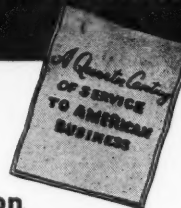 A Quarter Century
OF SERVICE
TO AMERICAN
BUSINESS
on